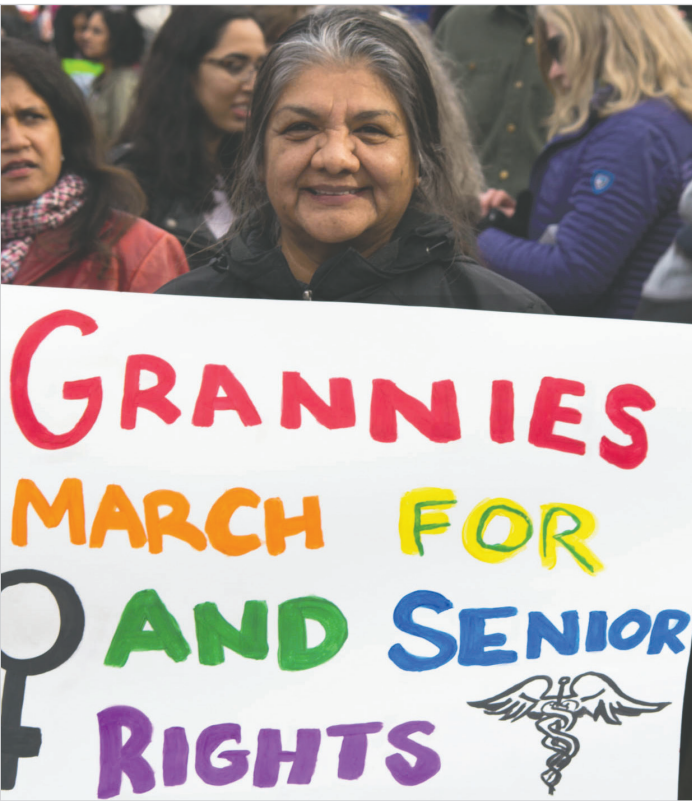 GRANNIES
MARCH FOR
AND SENIOR
RIGHTS